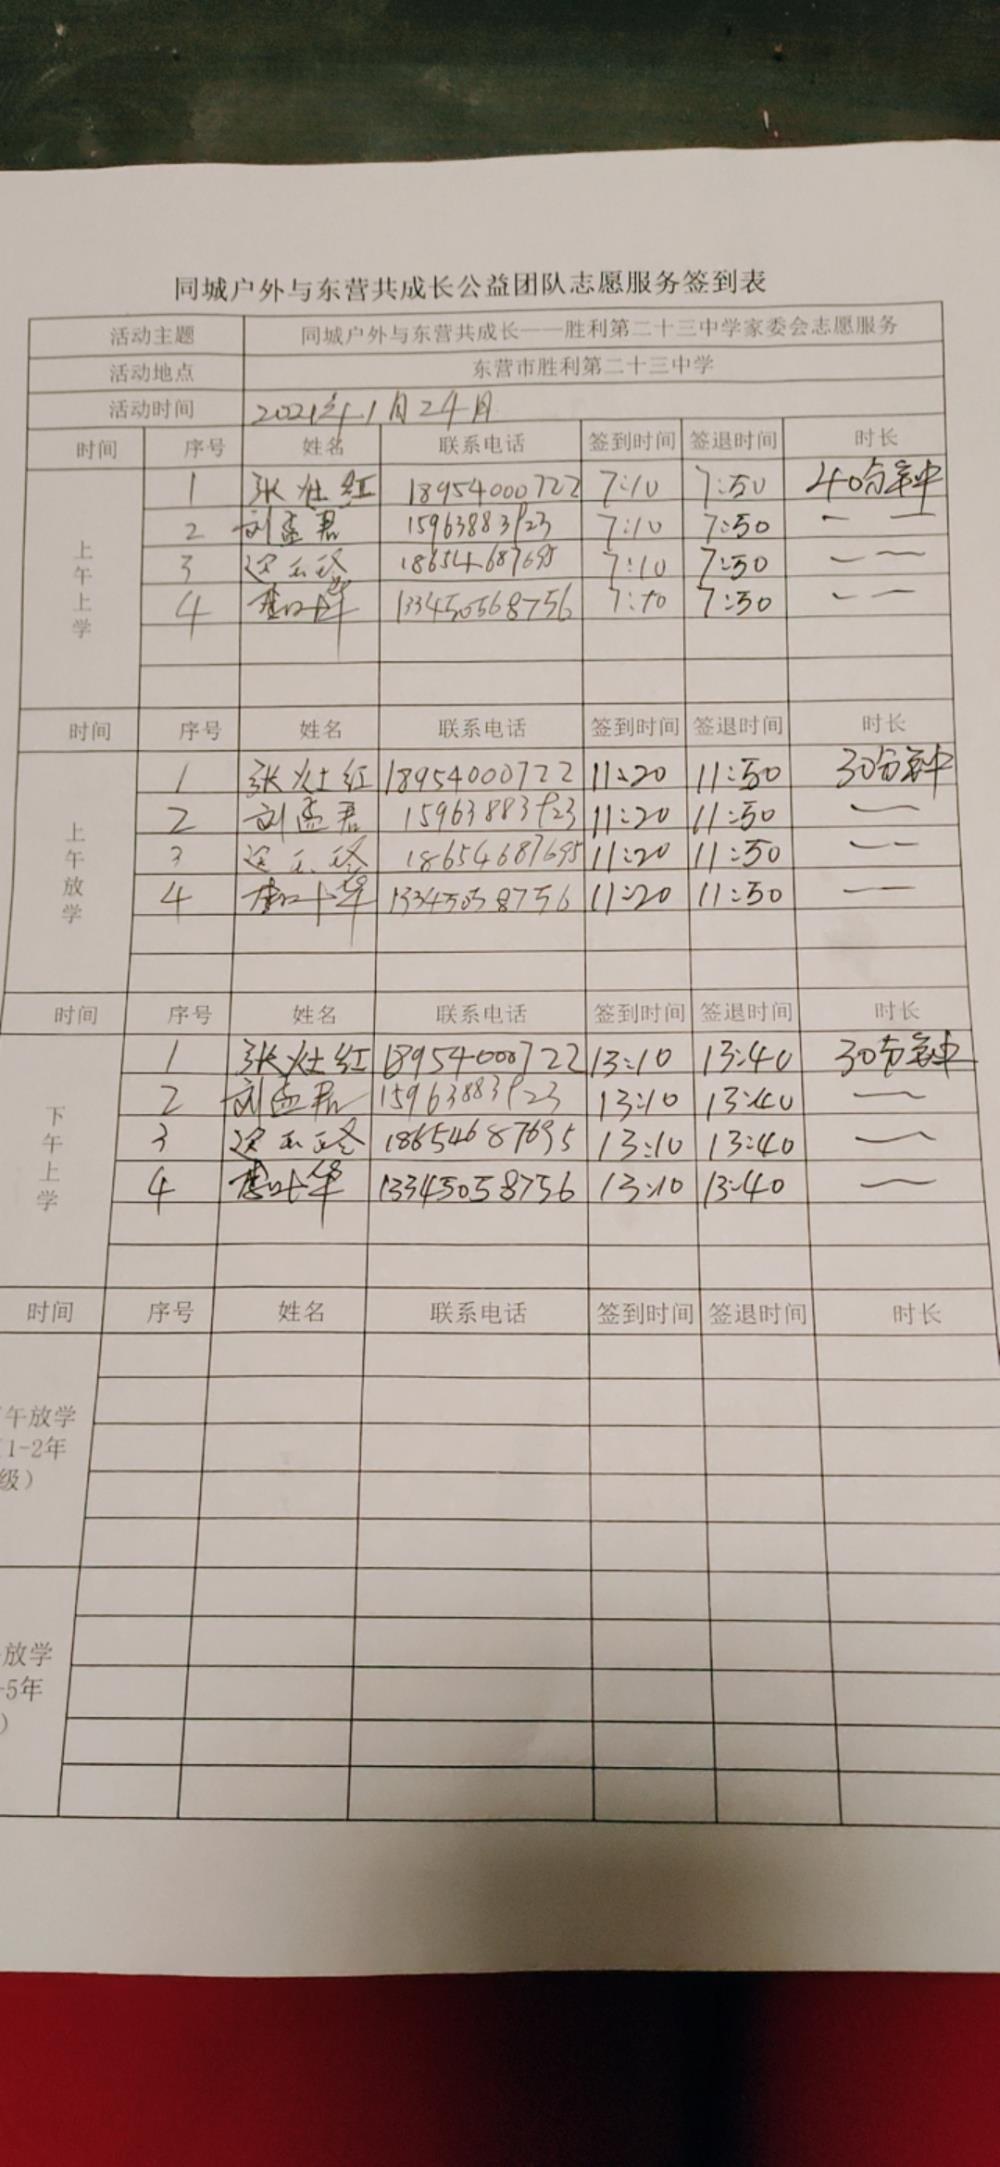 同城户外与东营共成长公益团队志愿服务签到表
活动主题 同城户外与东营共成长——胜利第二十三中学家委会志愿服务
活动地点 东营市胜利第二十三中学
活动时间 2021年1月24日
时间 序号 姓名 联系电话 签到时间 签退时间 时长
上午上学
1 张灶红 18954000722 7:10 7:50 40分钟
2 刘孟君 15963883923 7:10 7:50 — —
3 18654687695 7:10 7:50 — —
4 华 133450568756 7:10 7:50 — —
时间 序号 姓名 联系电话 签到时间 签退时间 时长
上午放学
1 张灶红 18954000722 11:20 11:50 30分钟
2 刘孟君 15963883923 11:20 11:50 —
3 18654687695 11:20 11:50 — —
4 华 13345058756 11:20 11:50 —
时间 序号 姓名 联系电话 签到时间 签退时间 时长
下午上学
1 张灶红 18954000722 13:10 13:40 30分钟
2 刘孟君 15963883923 13:10 13:40 —
3 18654687695 13:10 13:40 —
4 华 13345058756 13:10 13:40 —
时间 序号 姓名 联系电话 签到时间 签退时间 时长
午放学
1-2年
级）
放学
-5年
）